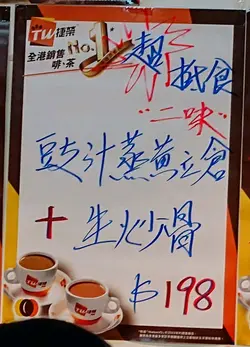 TW捷榮
全港銷售
No.1
啡·茶
超抵食
"二味"
豉汁蒸黃立倉
+ 生炒骨
$198